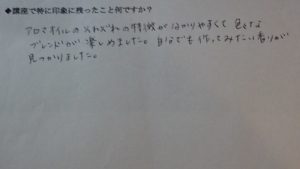 ◆講座で特に印象に残ったこと何ですか?
アロマオイルのそれぞれの特徴が分かりやすくて 色々な
ブレンドが 楽しめました。自分でも作ってみたい香りが
見つかりました。